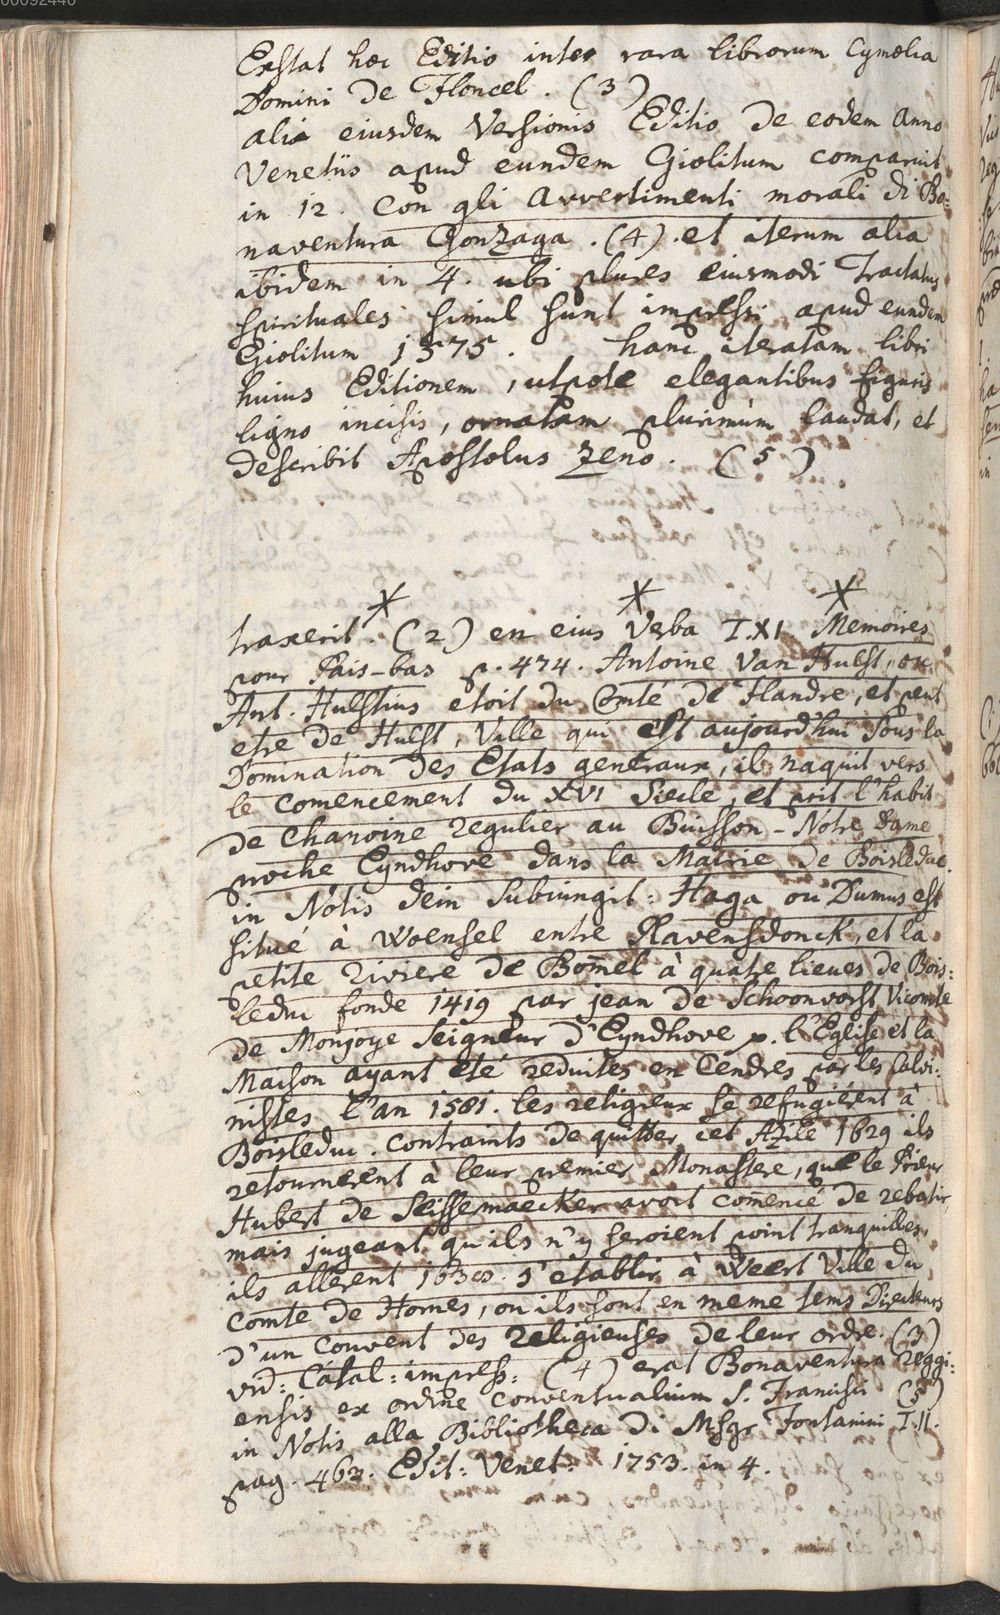 00092440
Exstat hoc Editio inter rara librorum Cymelia
Domini De Floncel. (3)
alia eiusdem Versionis Editio De eodem anno
Venetiis apud eundem Giolitum comparuit
in 12. Con gli Avvertimenti morali di Bo:
naventura Gonzaga. (4) . et iterum alia
ibidem in 4. ubi plures eiusmodi Tractatus
spirituales simul sunt impressi apud eundem
Giolitum 1575. hanc iteratam libri
huius Editionem, utpote elegantibus figuris
ligno incisis, ornatam plurimùm laudat, et
describit Apostolus Zeno. (5)
* * *
traxerit. (2) en eius Verba T.XI. Memoires
pour Païs-bas p. 474. Antoine Van Hulst, ou
Ant. Hulstius etoit du Comté de Flandre, et peut
etre de Hulst, Ville qui est aujourd'hui sous la
Domination des Etats generaux, il naquit vers
le comencement du XVI Siecle, et prit l'habit
de Chanoine regulier au Buisson-Notre Dame
proche Eyndhove dans la Mairie de Boisleduc.
in Notis dein subiungit: Haga ou Dumus est
situé à Woensel entre Ravensdonck, et la
petite riviere de Bom̄el à quatre lieues de Bois:
leduc fonde 1419 par jean de Schoonvorst Vicomte
de Monjoye Seigneur d'Eyndhove p. l'Eglise et la
Maison ayant eté reduites en Cendres par les Calvi:
nistes l'an 1581. les religieux se refugiérent à
Boisleduc. contraints de quitter cet Azile 1629 ils
retournerent à leur premier Monastere, que le Prieur
Hubert de Seissemaecker avoit comencé de rebatir,
mais jugeant qu'ils n'y seroient point tranquilles,
ils allerent s'etablir à Weert Ville du
comte de Hornes, ou ils sont en meme tems Directeurs
d'un Couvent des Religieuses de leur ordre. (3)
vid: Catal: impress: (4) erat Bonaventura Reggi:
ensis ex ordine Conventualium S. Francisci (5)
in Notis alla Bibliotheca di Msgr Fontanini T.II.
pag. 462. Edit: Venet: 1753. in 4.